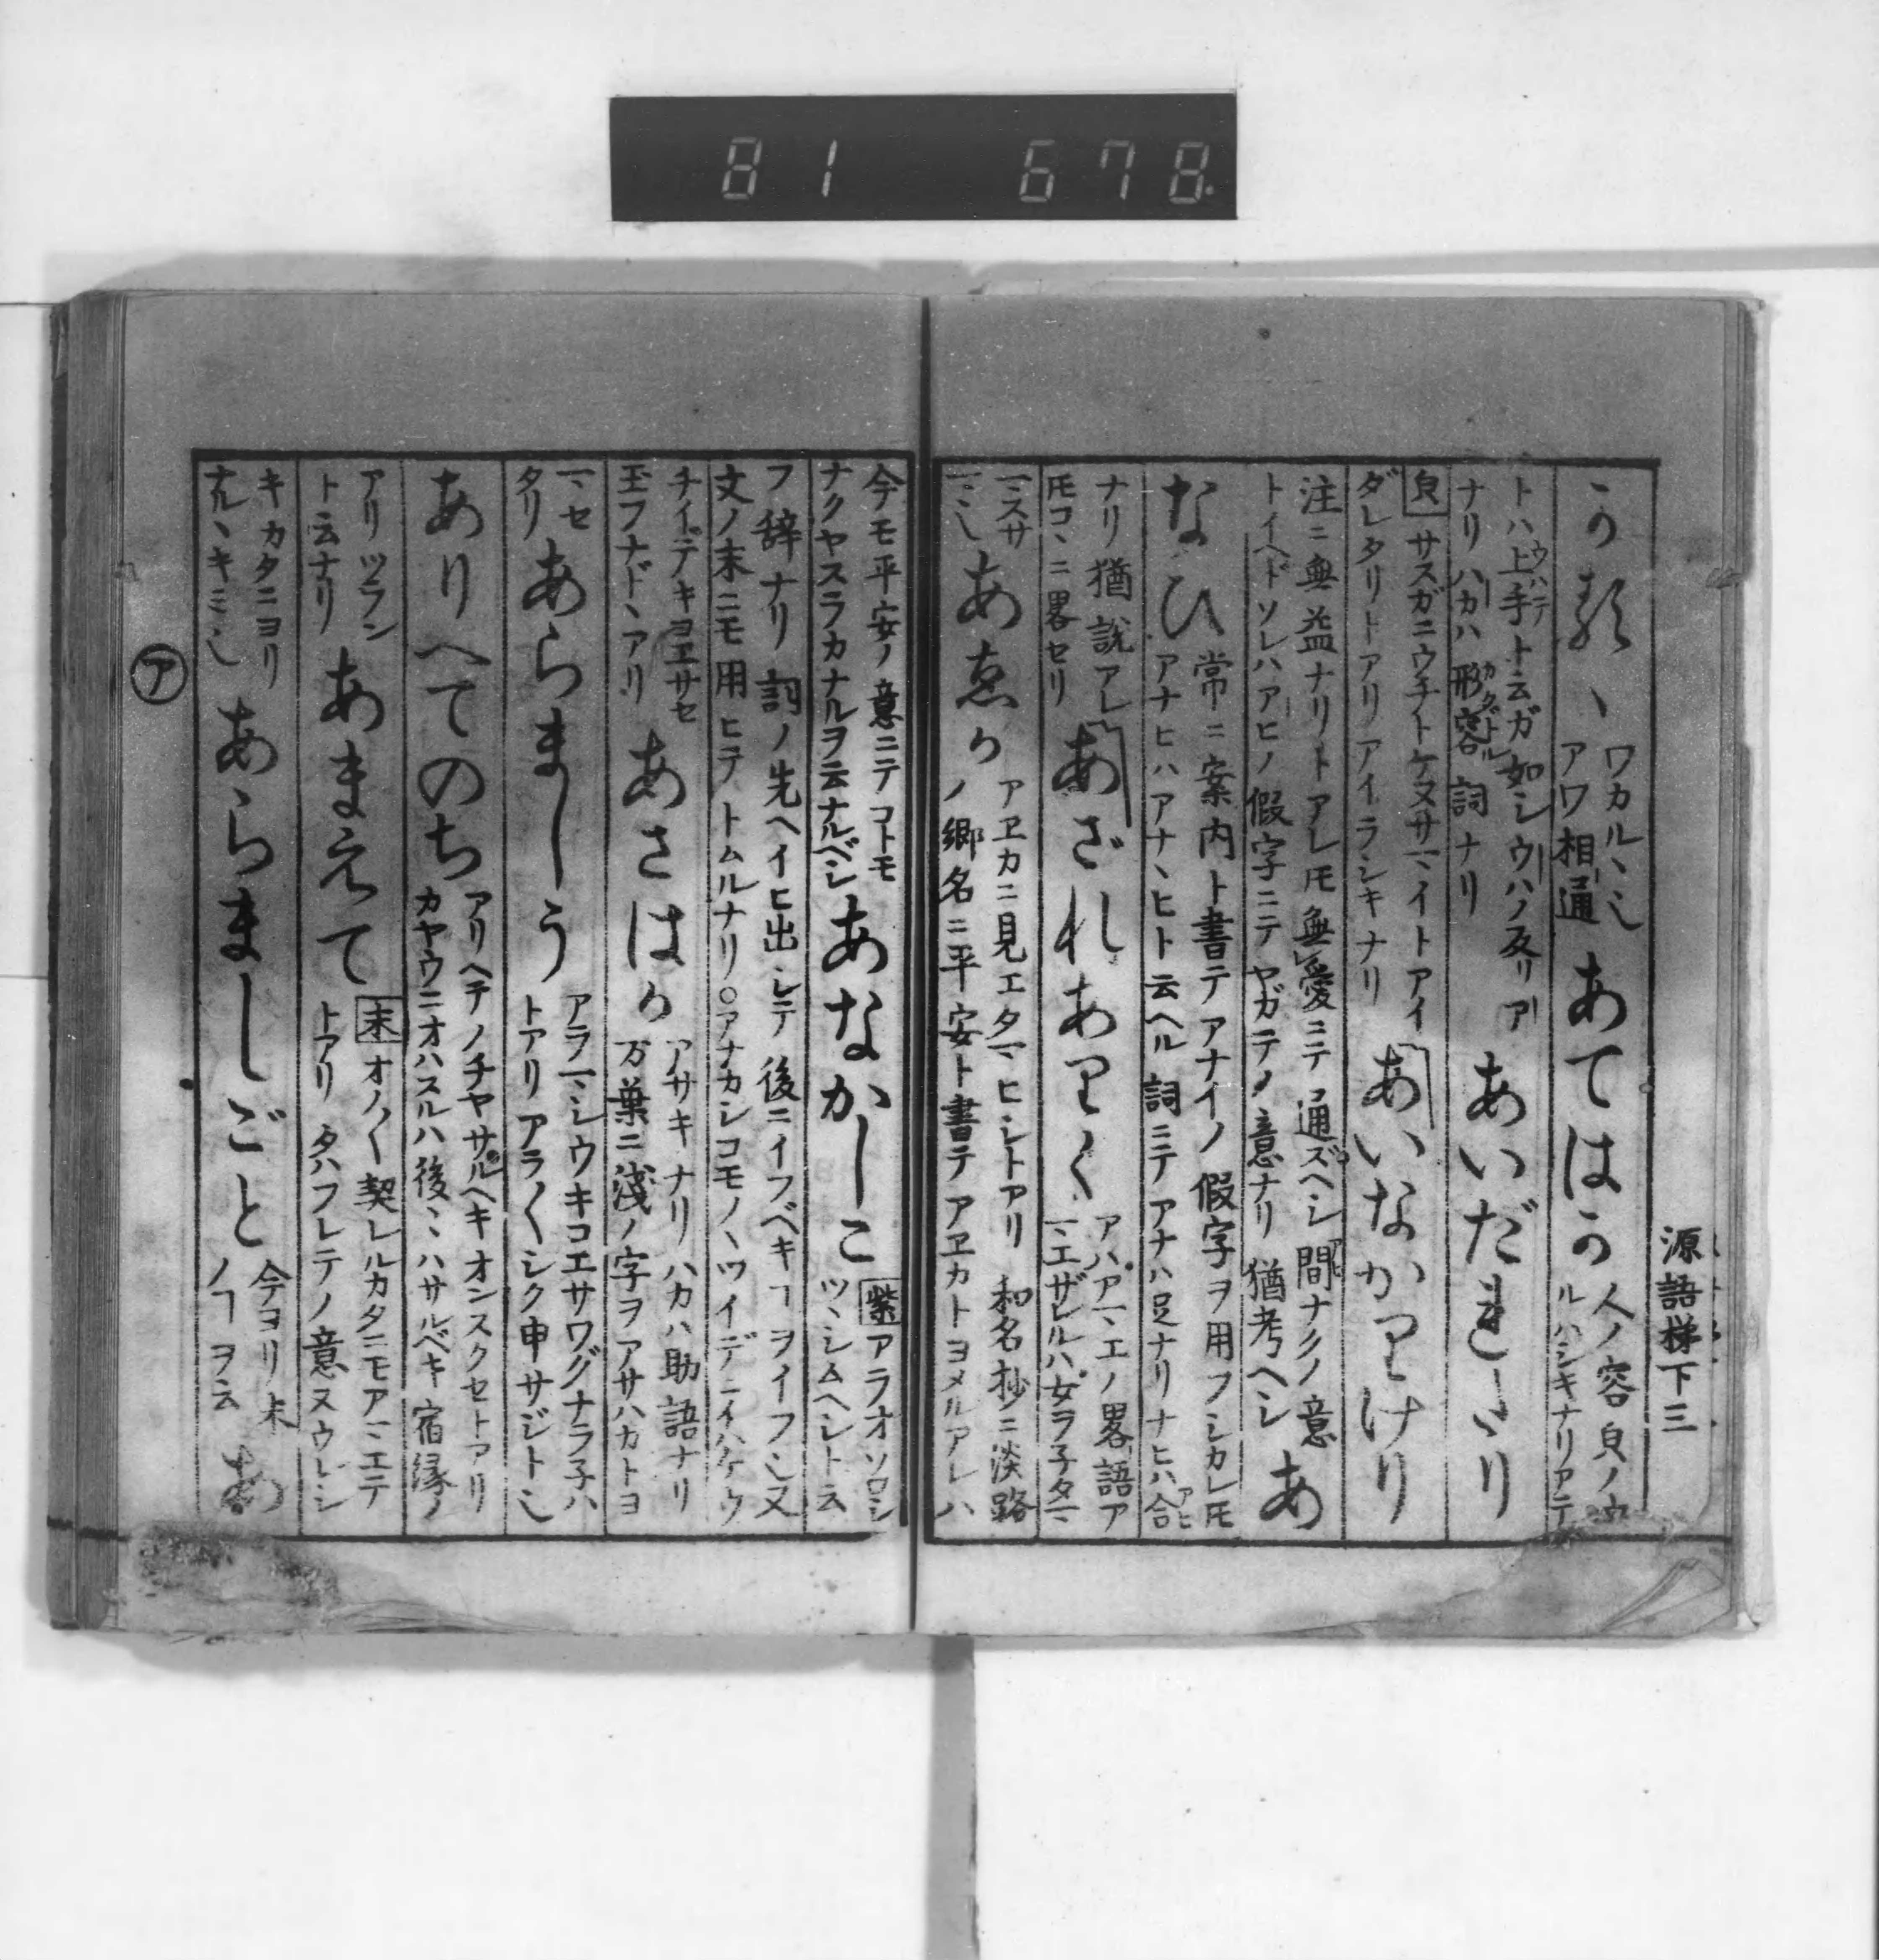 81 678
源語梯下三
かるゝ ワカルヽ也
アワ相通
あてはか 人ノ容皃ノウ
ルハシキナリアテ
トハ上手ト云ガ如シウハノ反リア
ナリハカハ形容詞ナリ
あいだれたり
皃 サスガニウチトケヌサマイトアイ
ダレタリトアリアイラシキナリ
あいなかりけり
注ニ無益ナリトアレ𪜈無愛ニテ通ズヘシ間ナクノ意
トイヘドソレハアヒノ假字ニテヤガテノ意ナリ猶考ヘシ
あ
なひ 常ニ案内ト書テアナイノ假字ヲ用フシカレ𪜈
アナヒハアナヽヒト云ヘル詞ニテアナハ足ナリナヒハ合
ナリ猶說アレ
𪜈コヽニ畧セリ
あざれありく アハアマエノ畧語ア
マエザレルハ女ラ子タマ
マスサ
マ也
あゑか アヱカニ見エタマヒシトアリ 和名抄ニ淡路
ノ郷名ニ平安ト書テアヱカトヨメルアレハ
今モ平安ノ意ニテコトモ
ナクヤスラカナルヲ云ナルベシ
あなかしこ 紫 アラオソロシ
ツヽシムヘシト云
フ辞ナリ詞ノ先ヘイヒ出シテ後ニイフベキヿヲイフ也又
文ノ末ニモ用ヒテトムルナリ○アナカシコモノヽツイデニイヘケウ
チイデテキヨエサセ
玉フナドヽアリ
あさはか アサキナリハカハ助語ナリ
万葉ニ淺ノ字ヲアサハカトヨ
マセ
タリ
あらましう アラマシウキコエサワグナラ子ハ
トアリアラ〳〵シク申サジト也
ありへてのち アリヘテノチヤサルヘキオンスクセトアリ
カヤウニオハスルハ後々ハサルベキ宿縁ノ
アリツラン
ト云ナリ
あまえて 末 オノ〳〵契レルカタニモアマエテ
トアリタハフレテノ意又ウレシ
キカタニヨリ
ナルヽキミ也
あらましごと 今ヨリ末
ノヿヲ云
あ
ア